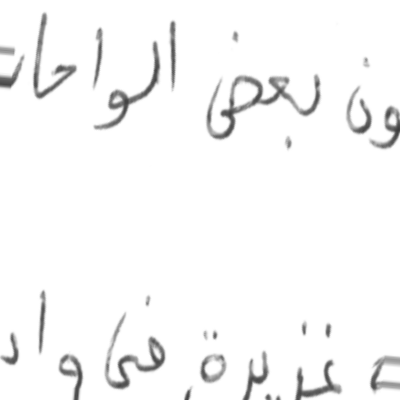 ون بعض الواحات
غزيرة في واد